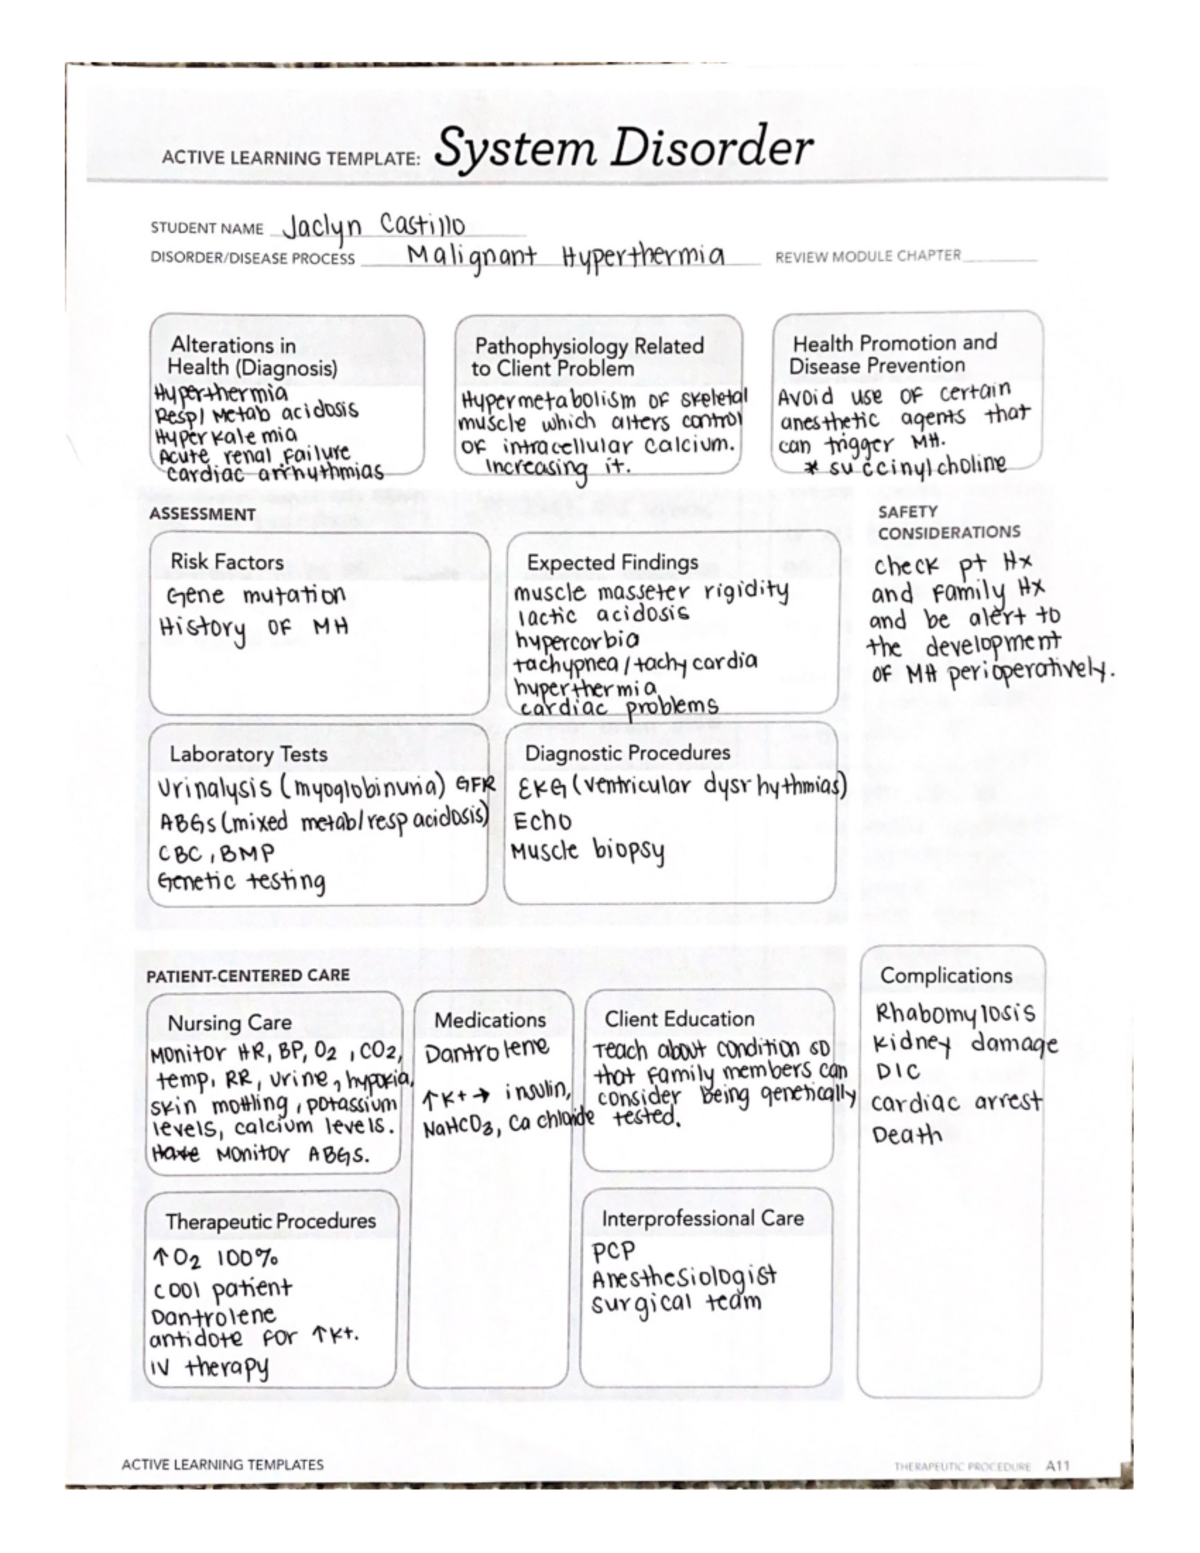 ACTIVE LEARNING TEMPLATE: System Disorder
STUDENT NAME Jaclyn Castillo
DISORDER/DISEASE PROCESS Malignant Hyperthermia REVIEW MODULE CHAPTER
Alterations in
Health (Diagnosis)
Hyperthermia
Resp/ Metab acidosis
Hyperkalemia
Acute renal failure
cardiac arrhythmias
Pathophysiology Related
to Client Problem
Hypermetabolism of skeletal
muscle which alters control
of intracellular calcium.
Increasing it.
Health Promotion and
Disease Prevention
Avoid use of certain
anesthetic agents that
can trigger MH.
* succinylcholine
ASSESSMENT
SAFETY
CONSIDERATIONS
check pt Hx
and family Hx
and be alert to
the development
of MH perioperatively.
Risk Factors
Gene mutation
History of MH
Expected Findings
muscle masseter rigidity
lactic acidosis
hypercarbia
tachypnea/tachycardia
hyperthermia
cardiac problems
Laboratory Tests
Urinalysis (myoglobinuria) GFR
ABGs (mixed metab/resp acidosis)
CBC, BMP
Genetic testing
Diagnostic Procedures
EKG (ventricular dysrhythmias)
Echo
Muscle biopsy
PATIENT-CENTERED CARE
Nursing Care
Monitor HR, BP, O2, CO2,
temp, RR, urine, hypoxia,
skin mottling, potassium
levels, calcium levels.
Monitor ABGS.
Medications
Dantrolene
↑K+ → insulin,
NaHCO3, Ca chloride
Client Education
Teach about condition so
that family members can
consider being genetically
tested.
Complications
Rhabomylosis
kidney damage
DIC
cardiac arrest
Death
Therapeutic Procedures
↑O2 100%
cool patient
Dantrolene
antidote for ↑K+.
IV therapy
Interprofessional Care
PCP
Anesthesiologist
surgical team
ACTIVE LEARNING TEMPLATES
THERAPEUTIC PROCEDURE A11